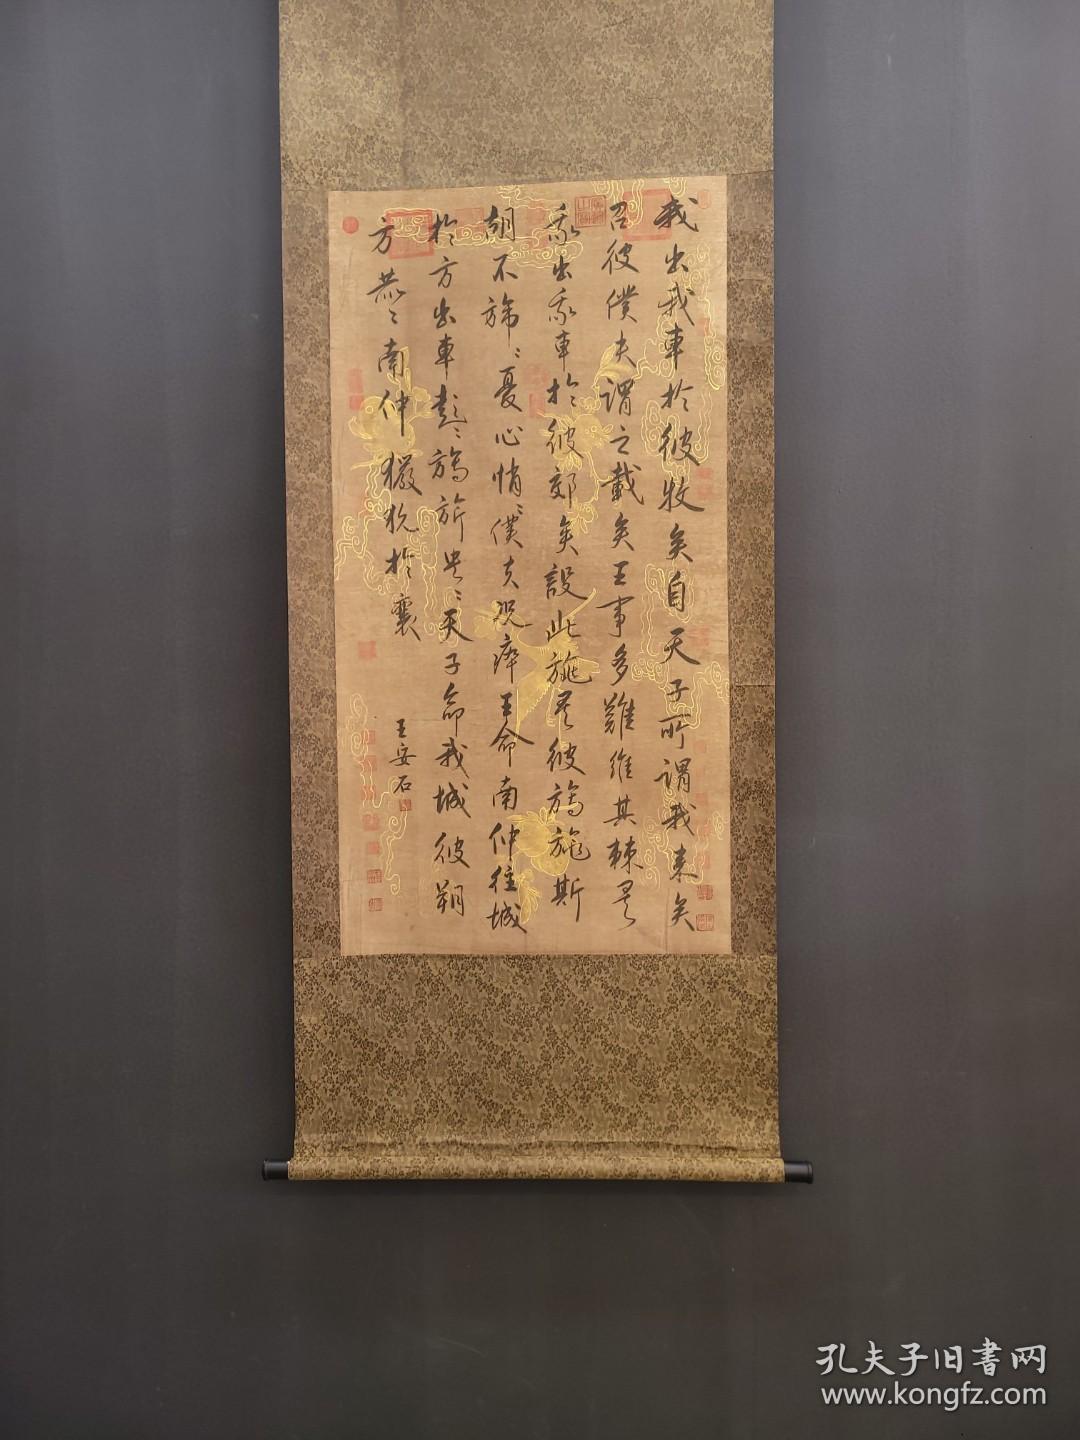 我出我車於彼牧矣自天子所謂我来矣
召彼僕夫謂之載矣王事多難維其棘矣
我出我車於彼郊矣設此旐矣彼旟旐斯
胡不旆〻憂心悄〻僕夫况瘁王命南仲往城
於方出車彭〻旂旐央〻天子命我城彼朔
方赫〻南仲玁狁於襄
王安石
孔夫子旧書网
www.kongfz.com